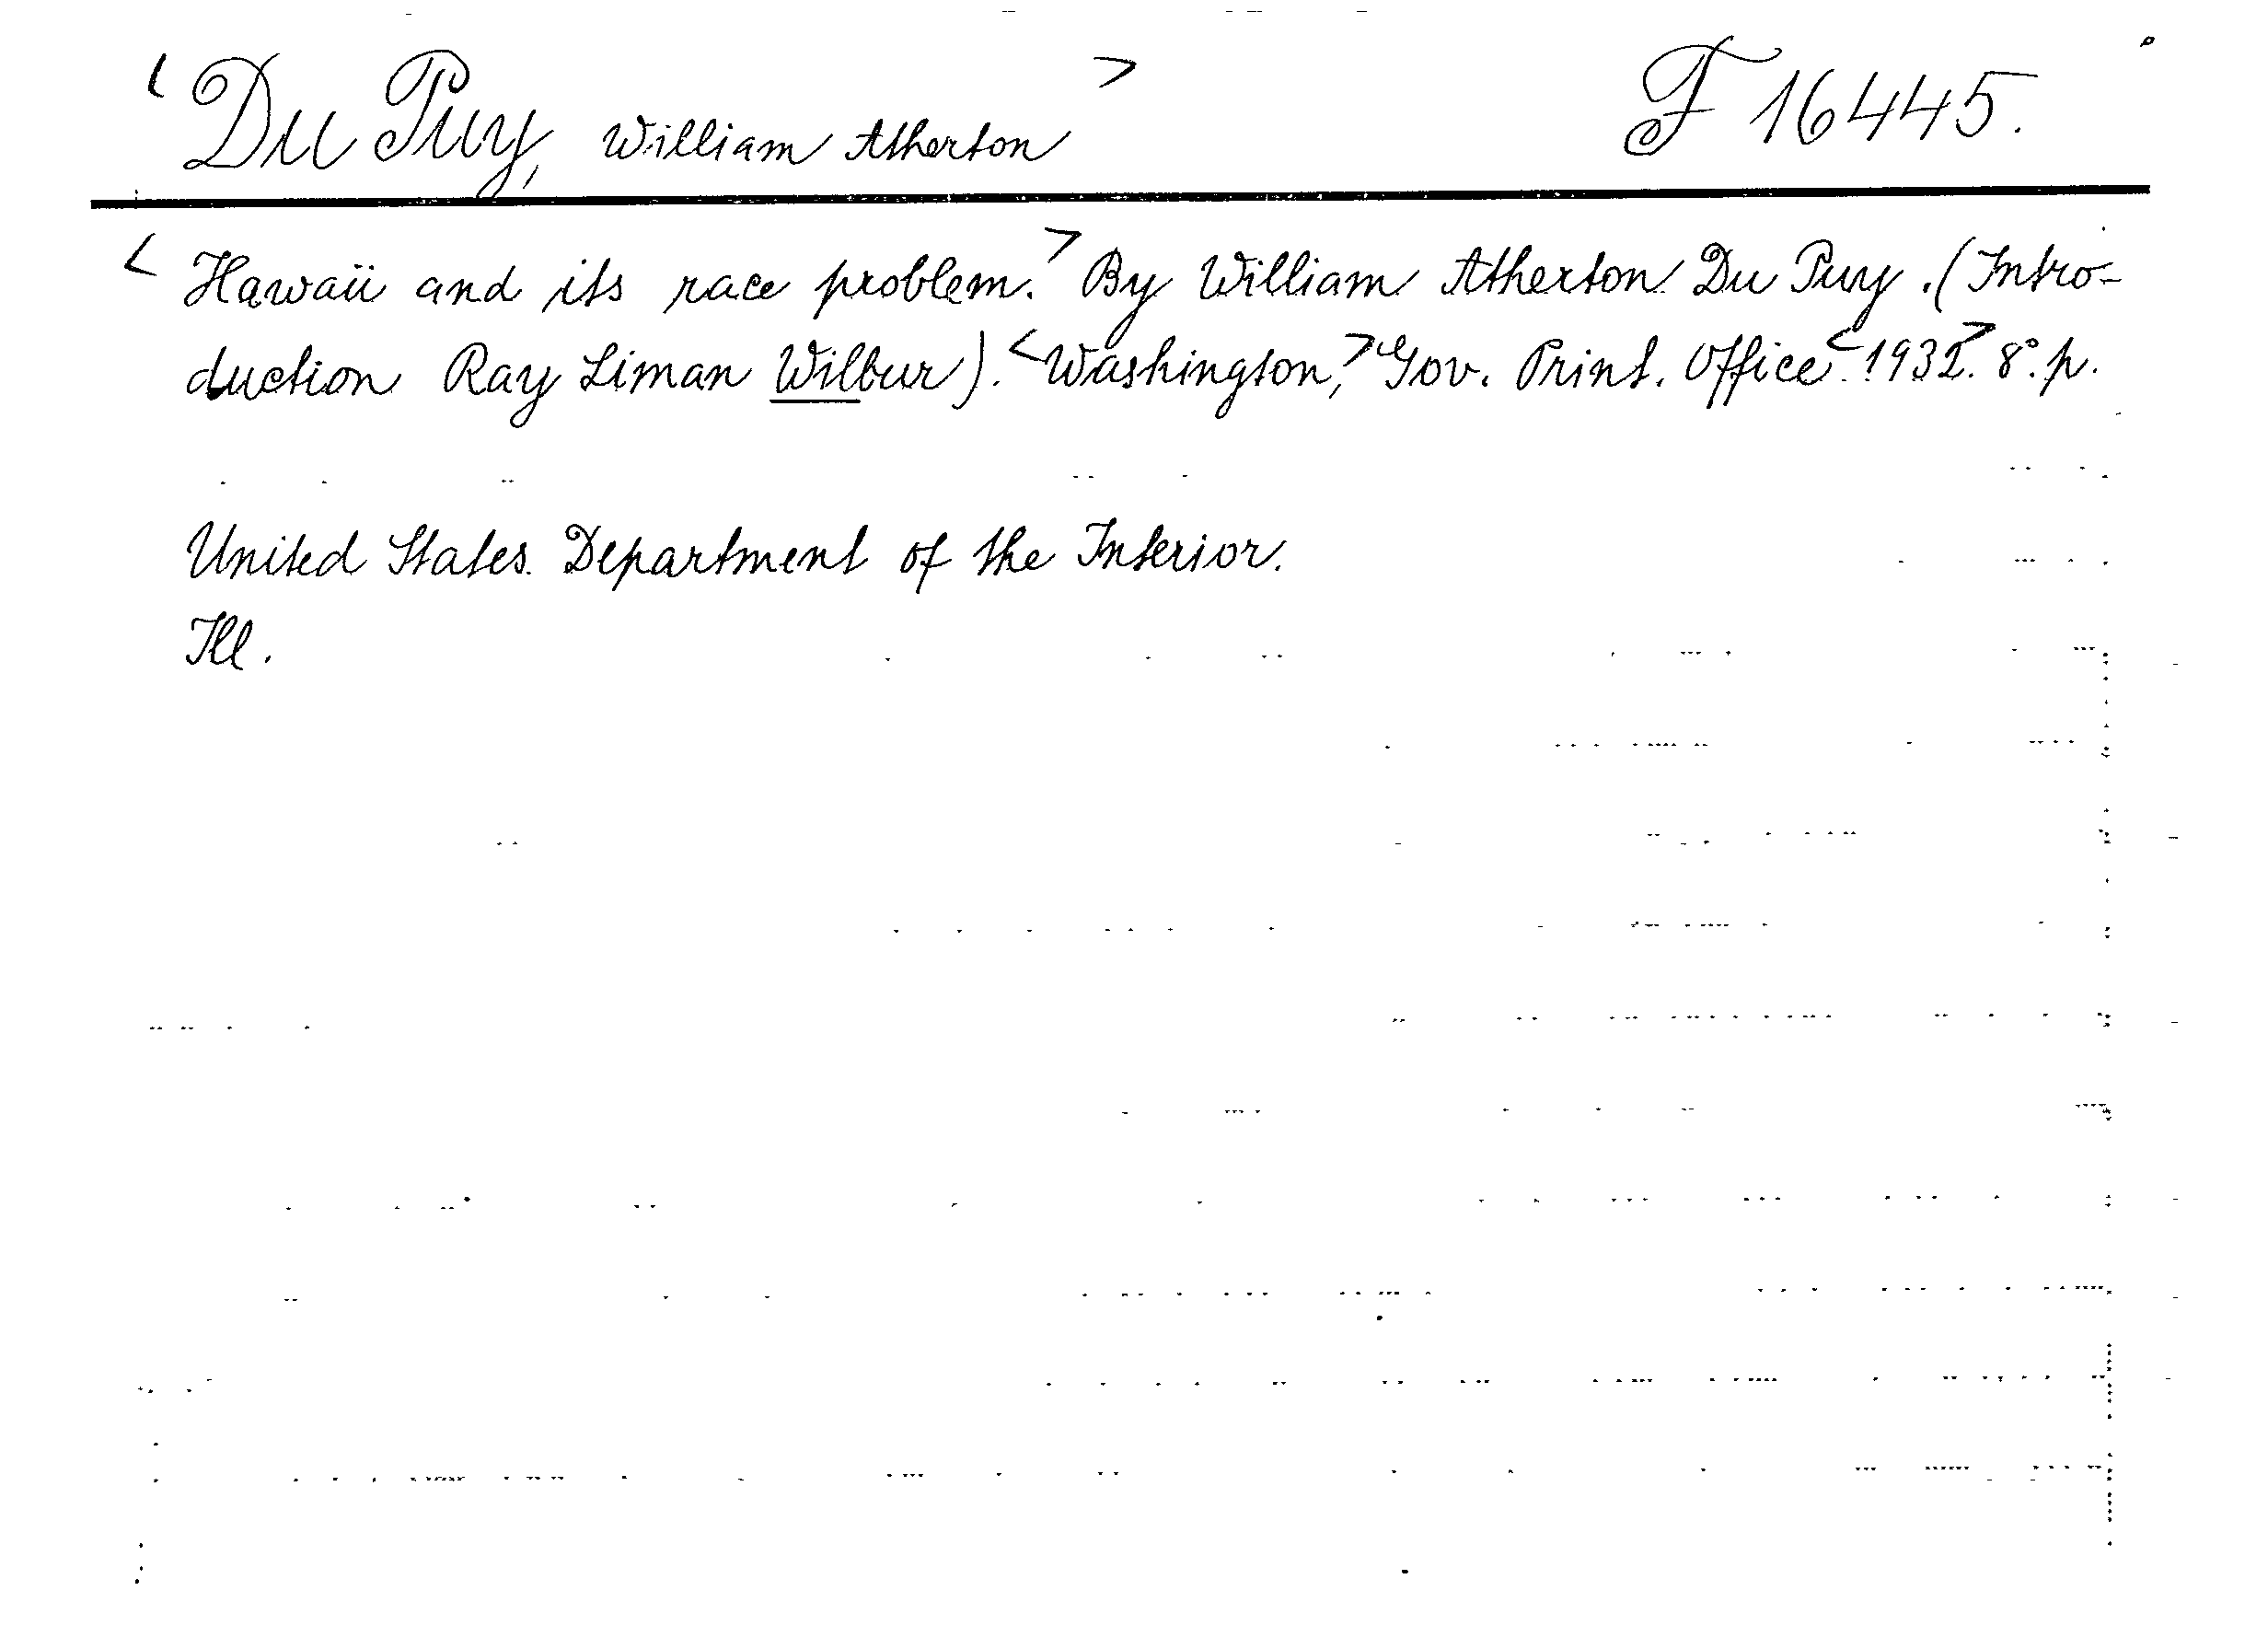 <Du Puy, William Atherton> F 16445.
<Hawaii and its race problem.> By William Atherton Du Puy. (Intro-
duction Ray Liman Wilbur). <Washington,> Gov. Print. Office <1932.> 8°. p.
United States. Department of the Interior.
Ill.